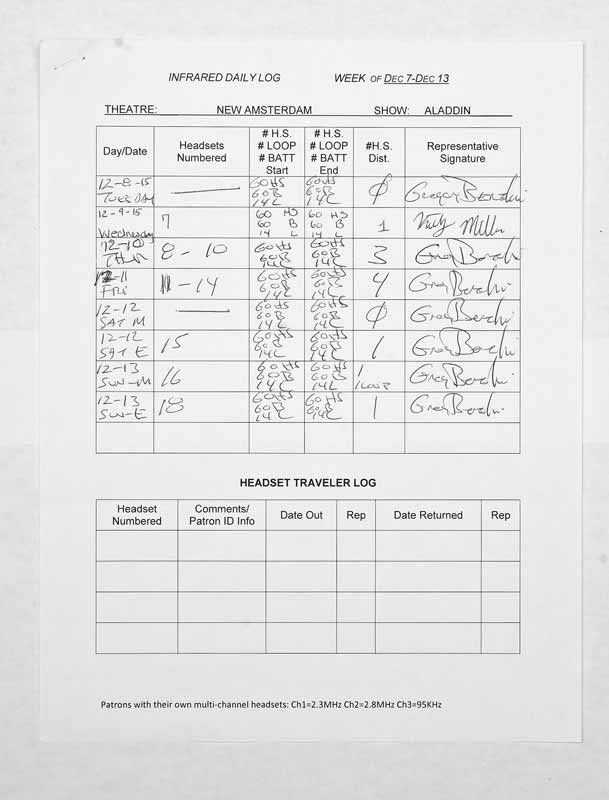 INFRARED DAILY LOG WEEK OF DEC 7-DEC 13
THEATRE: NEW AMSTERDAM SHOW: ALADDIN
Day/Date Headsets Numbered # H.S. # LOOP # BATT Start # H.S. # LOOP # BATT End #H.S. Dist. Representative Signature
12-8-15 TUESDAY — 60HS 60B 14L 60HS 60B 14L 0
12-9-15 Wednesday 7 60 HS 60 B 14 L 60 HS 60 B 14 L 1
12-10 THUR 8-10 60HS 60B 14L 60HS 60B 14L 3
12-11 FRI 11-14 60HS 60B 14L 60HS 60B 14L 4
12-12 SAT M — 60HS 60B 14L 60HS 60B 14L 0
12-12 SAT E 15 60HS 60B 14L 60HS 60B 14L 1
12-13 SUN-M 16 60HS 60B 14L 60HS 60B 14L 1 1 LOOP
12-13 SUN-E 18 60HS 60B 14L 60HS 60B 14L 1
HEADSET TRAVELER LOG
Headset Numbered Comments/ Patron ID Info Date Out Rep Date Returned Rep
Patrons with their own multi-channel headsets: Ch1=2.3MHz Ch2=2.8MHz Ch3=95KHz